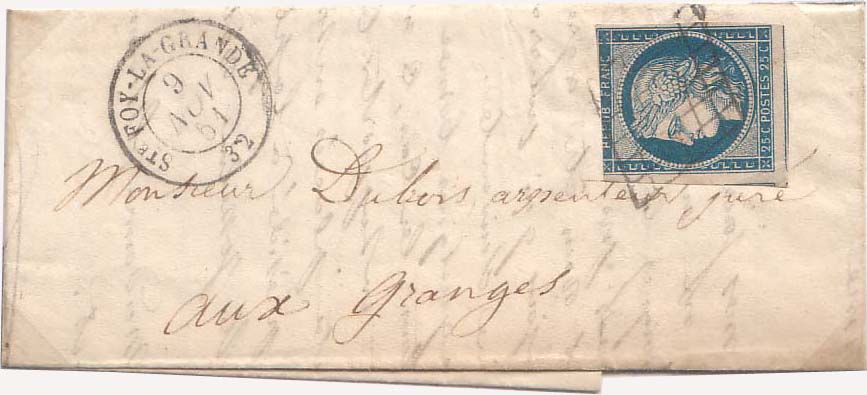 STE FOY-LA-GRANDE
9
AVR
51
32
REPUB FRANC
25 C POSTES 25 C
Monsieur Dubois arpenteur juré
aux granges